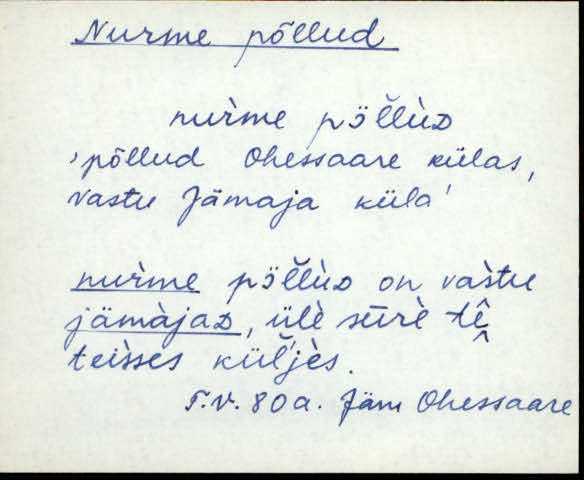 Nurme põllud
nur̀me pö̬l̆lùᴅ
'põllud Ohessaare külas,
vastu Jämaja küla'
nur̀me pö̬l̆lùᴅ on vàstu
jämàjaᴅ, ülè sūrè tê
teìsses kül̆jès.
T.V. 80a. Jäm Ohessaare